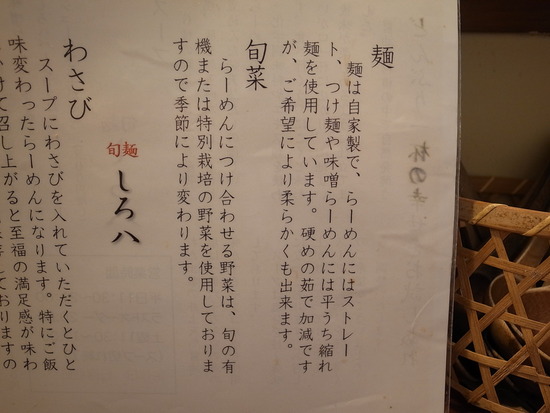 麺
麺は自家製で、らーめんにはストレー
ト、つけ麺や味噌らーめんには平うち縮れ
麺を使用しています。硬めの茹で加減です
が、ご希望により柔らかくも出来ます。
旬菜
らーめんにつけ合わせる野菜は、旬の有
機または特別栽培の野菜を使用しておりま
すので季節により変わります。
旬麺
しろ八
わさび
スープにわさびを入れていただくとひと
味変わったらーめんになります。特にご飯
かけて召し上がると至福の満足感が味わ
しておりますの